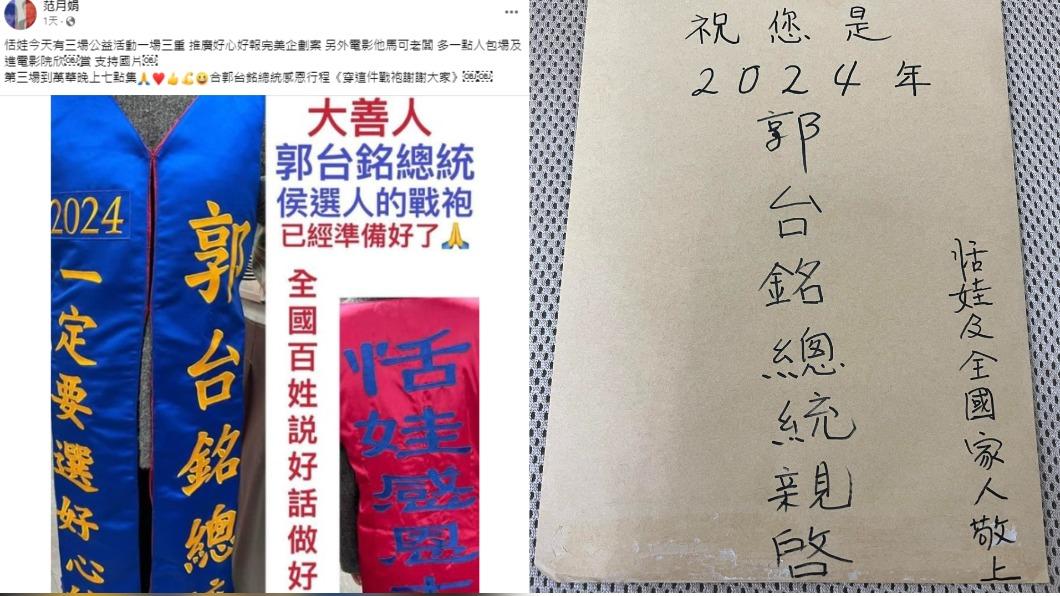 范月娟
1天
恬娃今天有三場公益活動一場三重 推廣好心好報完美企劃案 另外電影他馬可老闆 多一點人包場及
進電影院欣賞 支持國片
第三場到萬華晚上七點集🙏❤️👍💪😀合郭台銘總統感恩行程《穿這件戰袍謝謝大家》
2024
一定要選好心
郭台銘總
大善人
郭台銘總統
侯選人的戰袍
已經準備好了🙏
全國百姓說好話做好
恬娃感恩
祝您是
2024年
郭台銘總統親啓
恬娃及全國家人敬上